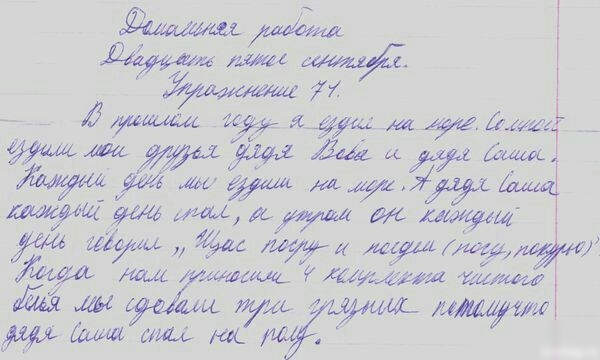 Домашняя работа
Двадцать пятое сентября.
Упражнение 71.
В прошлом году я ездил на море. Со мной
ездили мои друзья дядя Вова и дядя Саша.
Каждый день мы ездили на море. А дядя Саша
каждый день спал, а утром он каждый
день говорил „Щас и (, покурю)"
Когда нам приносили 4 комплекта чистого
белья мы сдовали три грязних потомучто
дядя Саша спал на полу.